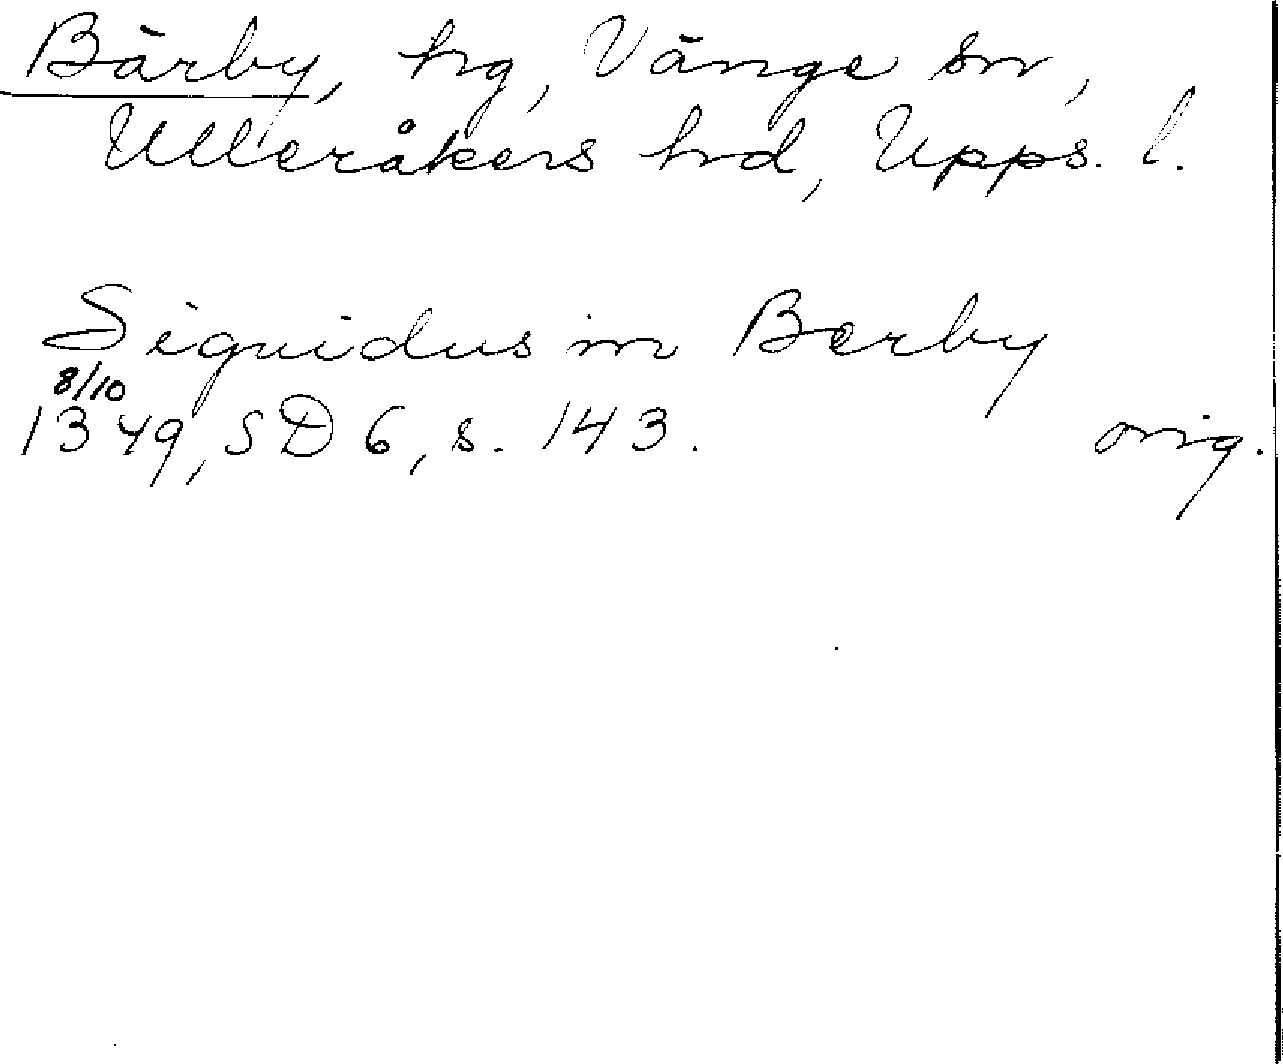 Bärby, hg, Vänge sn,
Ulleråkers hd, Upps. l.
Siguidus in Berby
8/10
1349, SD 6, s. 143. orig.